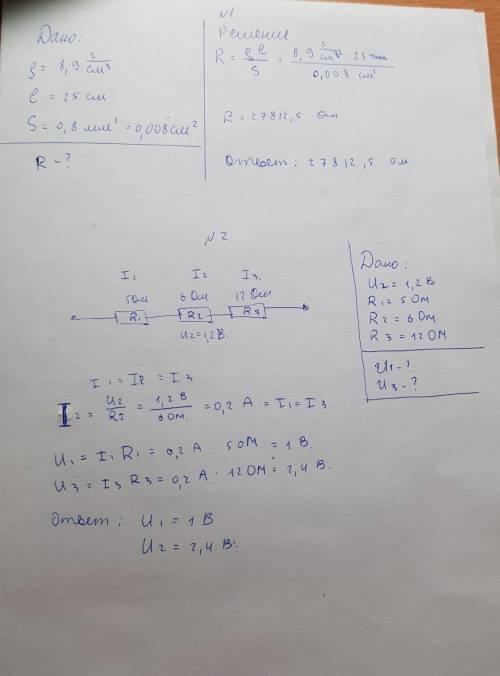 N1.
Дано:
ρ = 8,9 г/см³
l = 25 см
S = 0,8 мм² = 0,008 см²
R - ?
Решение
R = ρl/S = 8,9 г/см³ · 25 см / 0,008 см²
R = 27812,5 Ом
Ответ: 27812,5 Ом.
N2.
I₁ I₂ I₃.
5Ом 6 Ом 12 Ом
R₁ R₂ R₃
U₂ = 1,2 В.
Дано:
U₂ = 1,2 В
R₁ = 5 Ом
R₂ = 6 Ом
R₃ = 12 Ом
U₁ - ?
U₃ - ?
I₁ = I₂ = I₃
I₂ = U₂/R₂ = 1,2 В/6 Ом. = 0,2 А = I₁ = I₃.
U₁ = I₁ R₁ = 0,2 А · 5 ОМ = 1 В.
U₃ = I₃ R₃ = 0,2 А · 12 ОМ = 2,4 В.
Ответ: U₁ = 1 В
U₂ = 2,4 В.